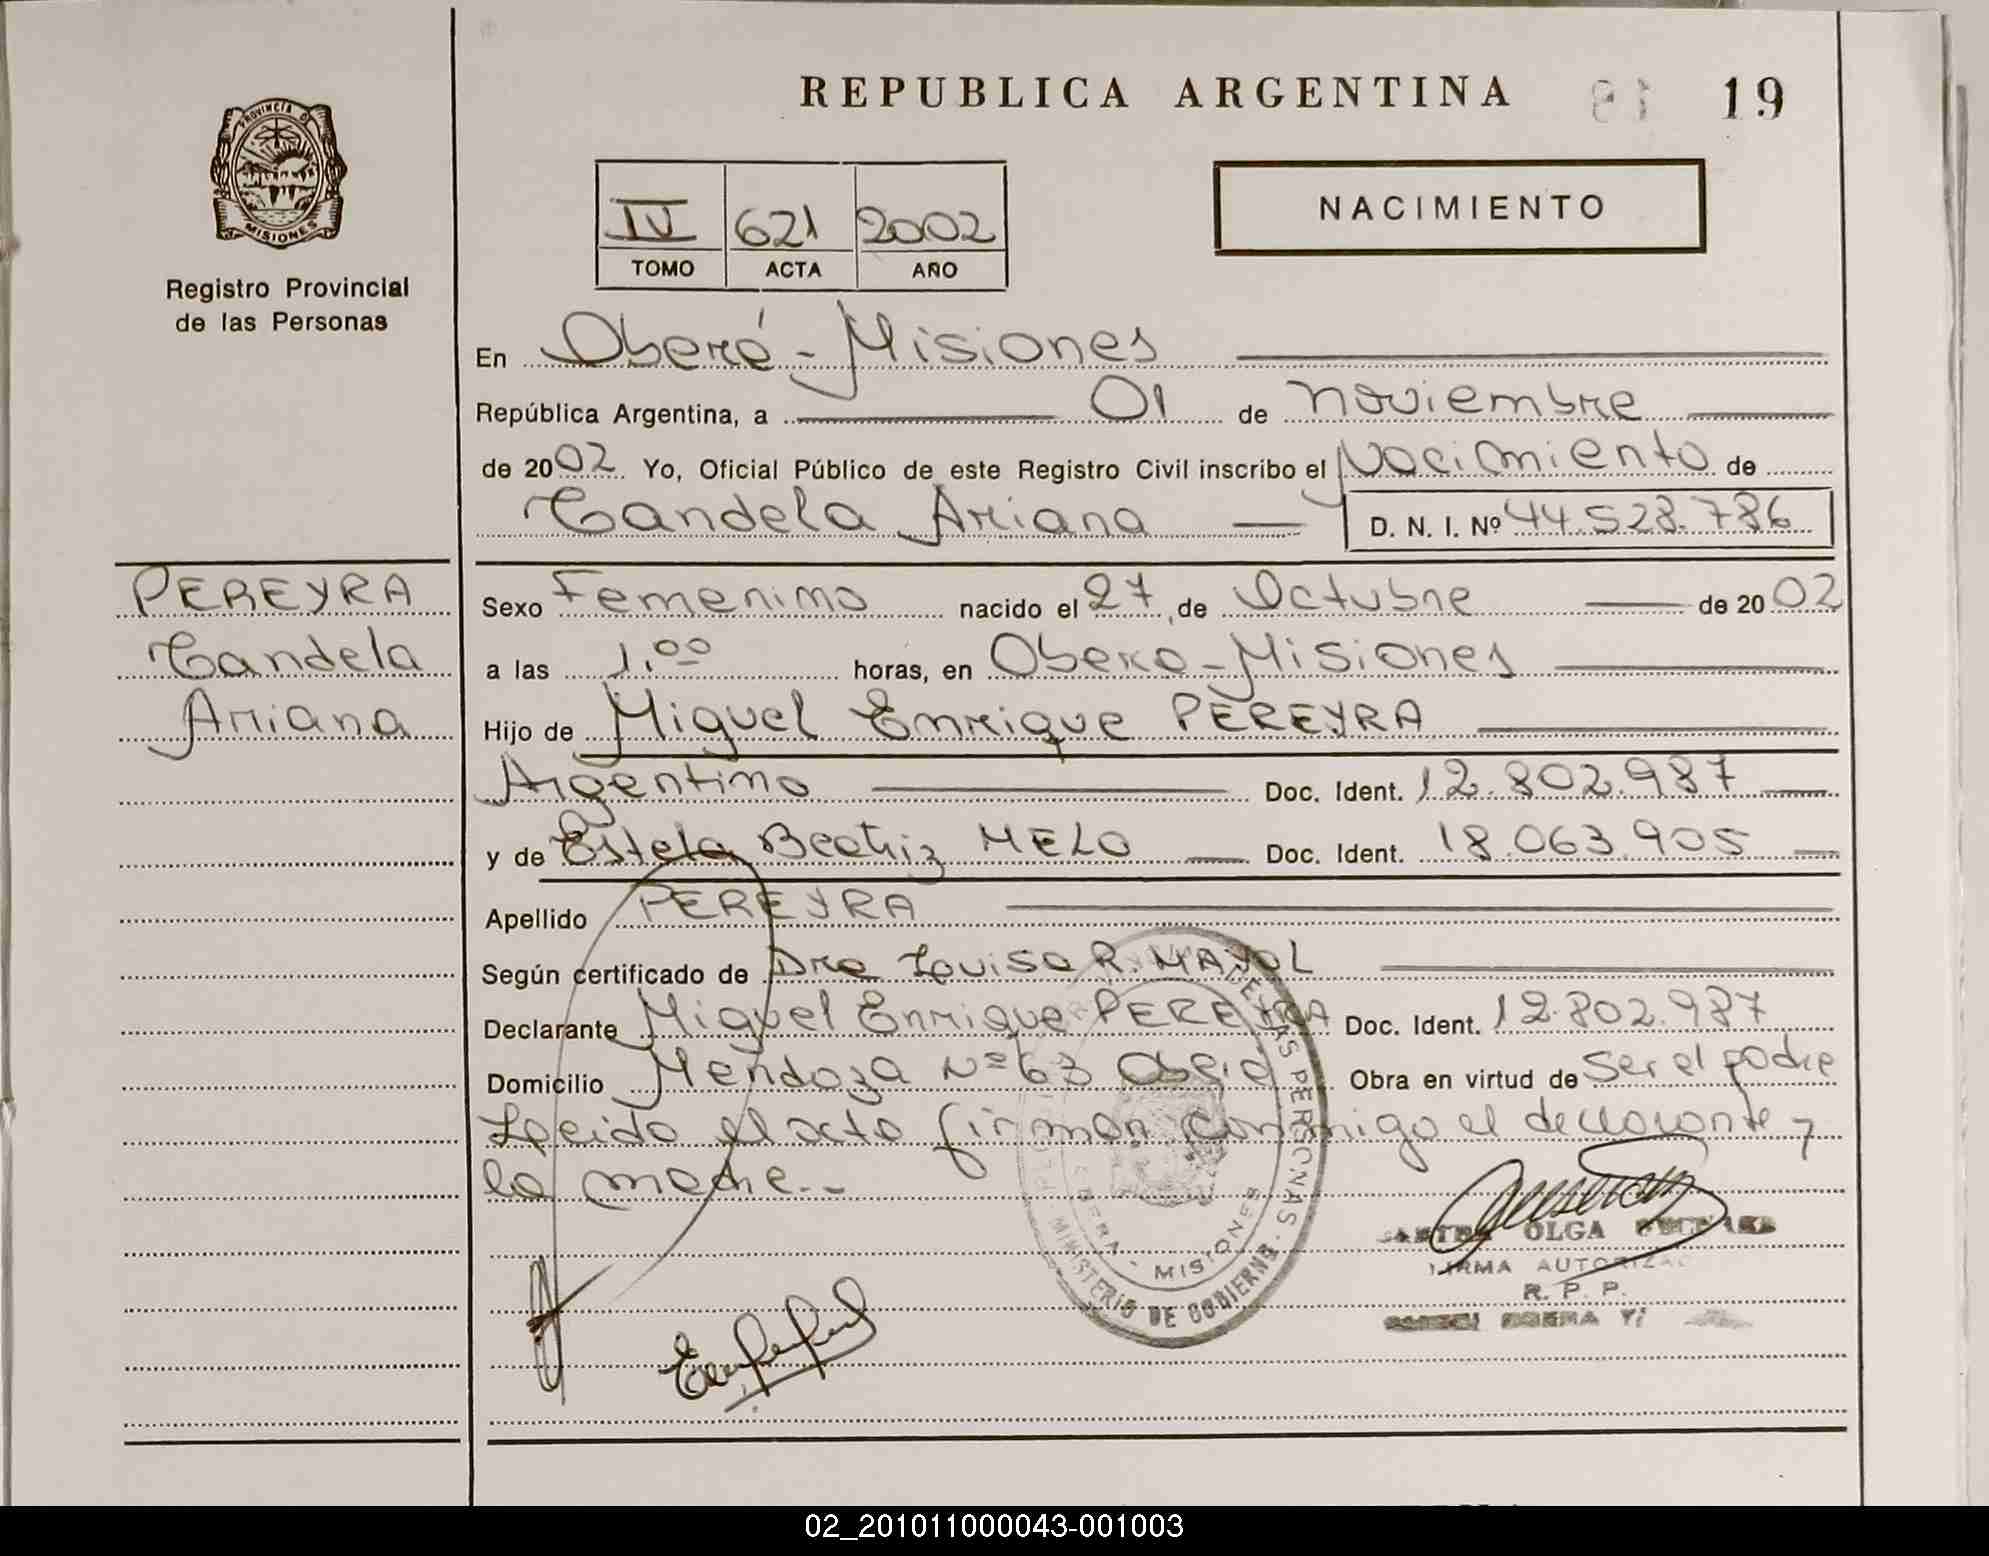 REPUBLICA ARGENTINA 19
PROVINCIA D MISIONES
Registro Provincial
de las Personas
IV 621 2002
TOMO ACTA AÑO
NACIMIENTO
En Oberá - Misiones
República Argentina, a 01 de noviembre
de 2002 Yo, Oficial Público de este Registro Civil inscribo el Nacimiento de
Candela Ariana D. N. I. Nº 44.528.786
PEREYRA
Candela
Ariana
Sexo Femenino nacido el 27 de Octubre de 2002
a las 1.00 horas, en Obera - Misiones
Hijo de Miguel Enrique PEREYRA
Argentino Doc. Ident. 12.802.987
y de Estela Beatriz MELO Doc. Ident. 18.063.905
Apellido PEREYRA
Según certificado de Dra Louisa R. MAYOL
Declarante Miguel Enrique PEREYRA Doc. Ident. 12.802.987
Domicilio Mendoza Nº 63 Oberá Obra en virtud de Ser el padre
Leeida el acta firman conmigo el declarante y
la madre.-
LAS PERSONAS - MINISTERIO DE GOBIERNO
OBERA - MISIONES
OLGA
FIRMA AUTORIZA
R. P. P.
02_201011000043-001003